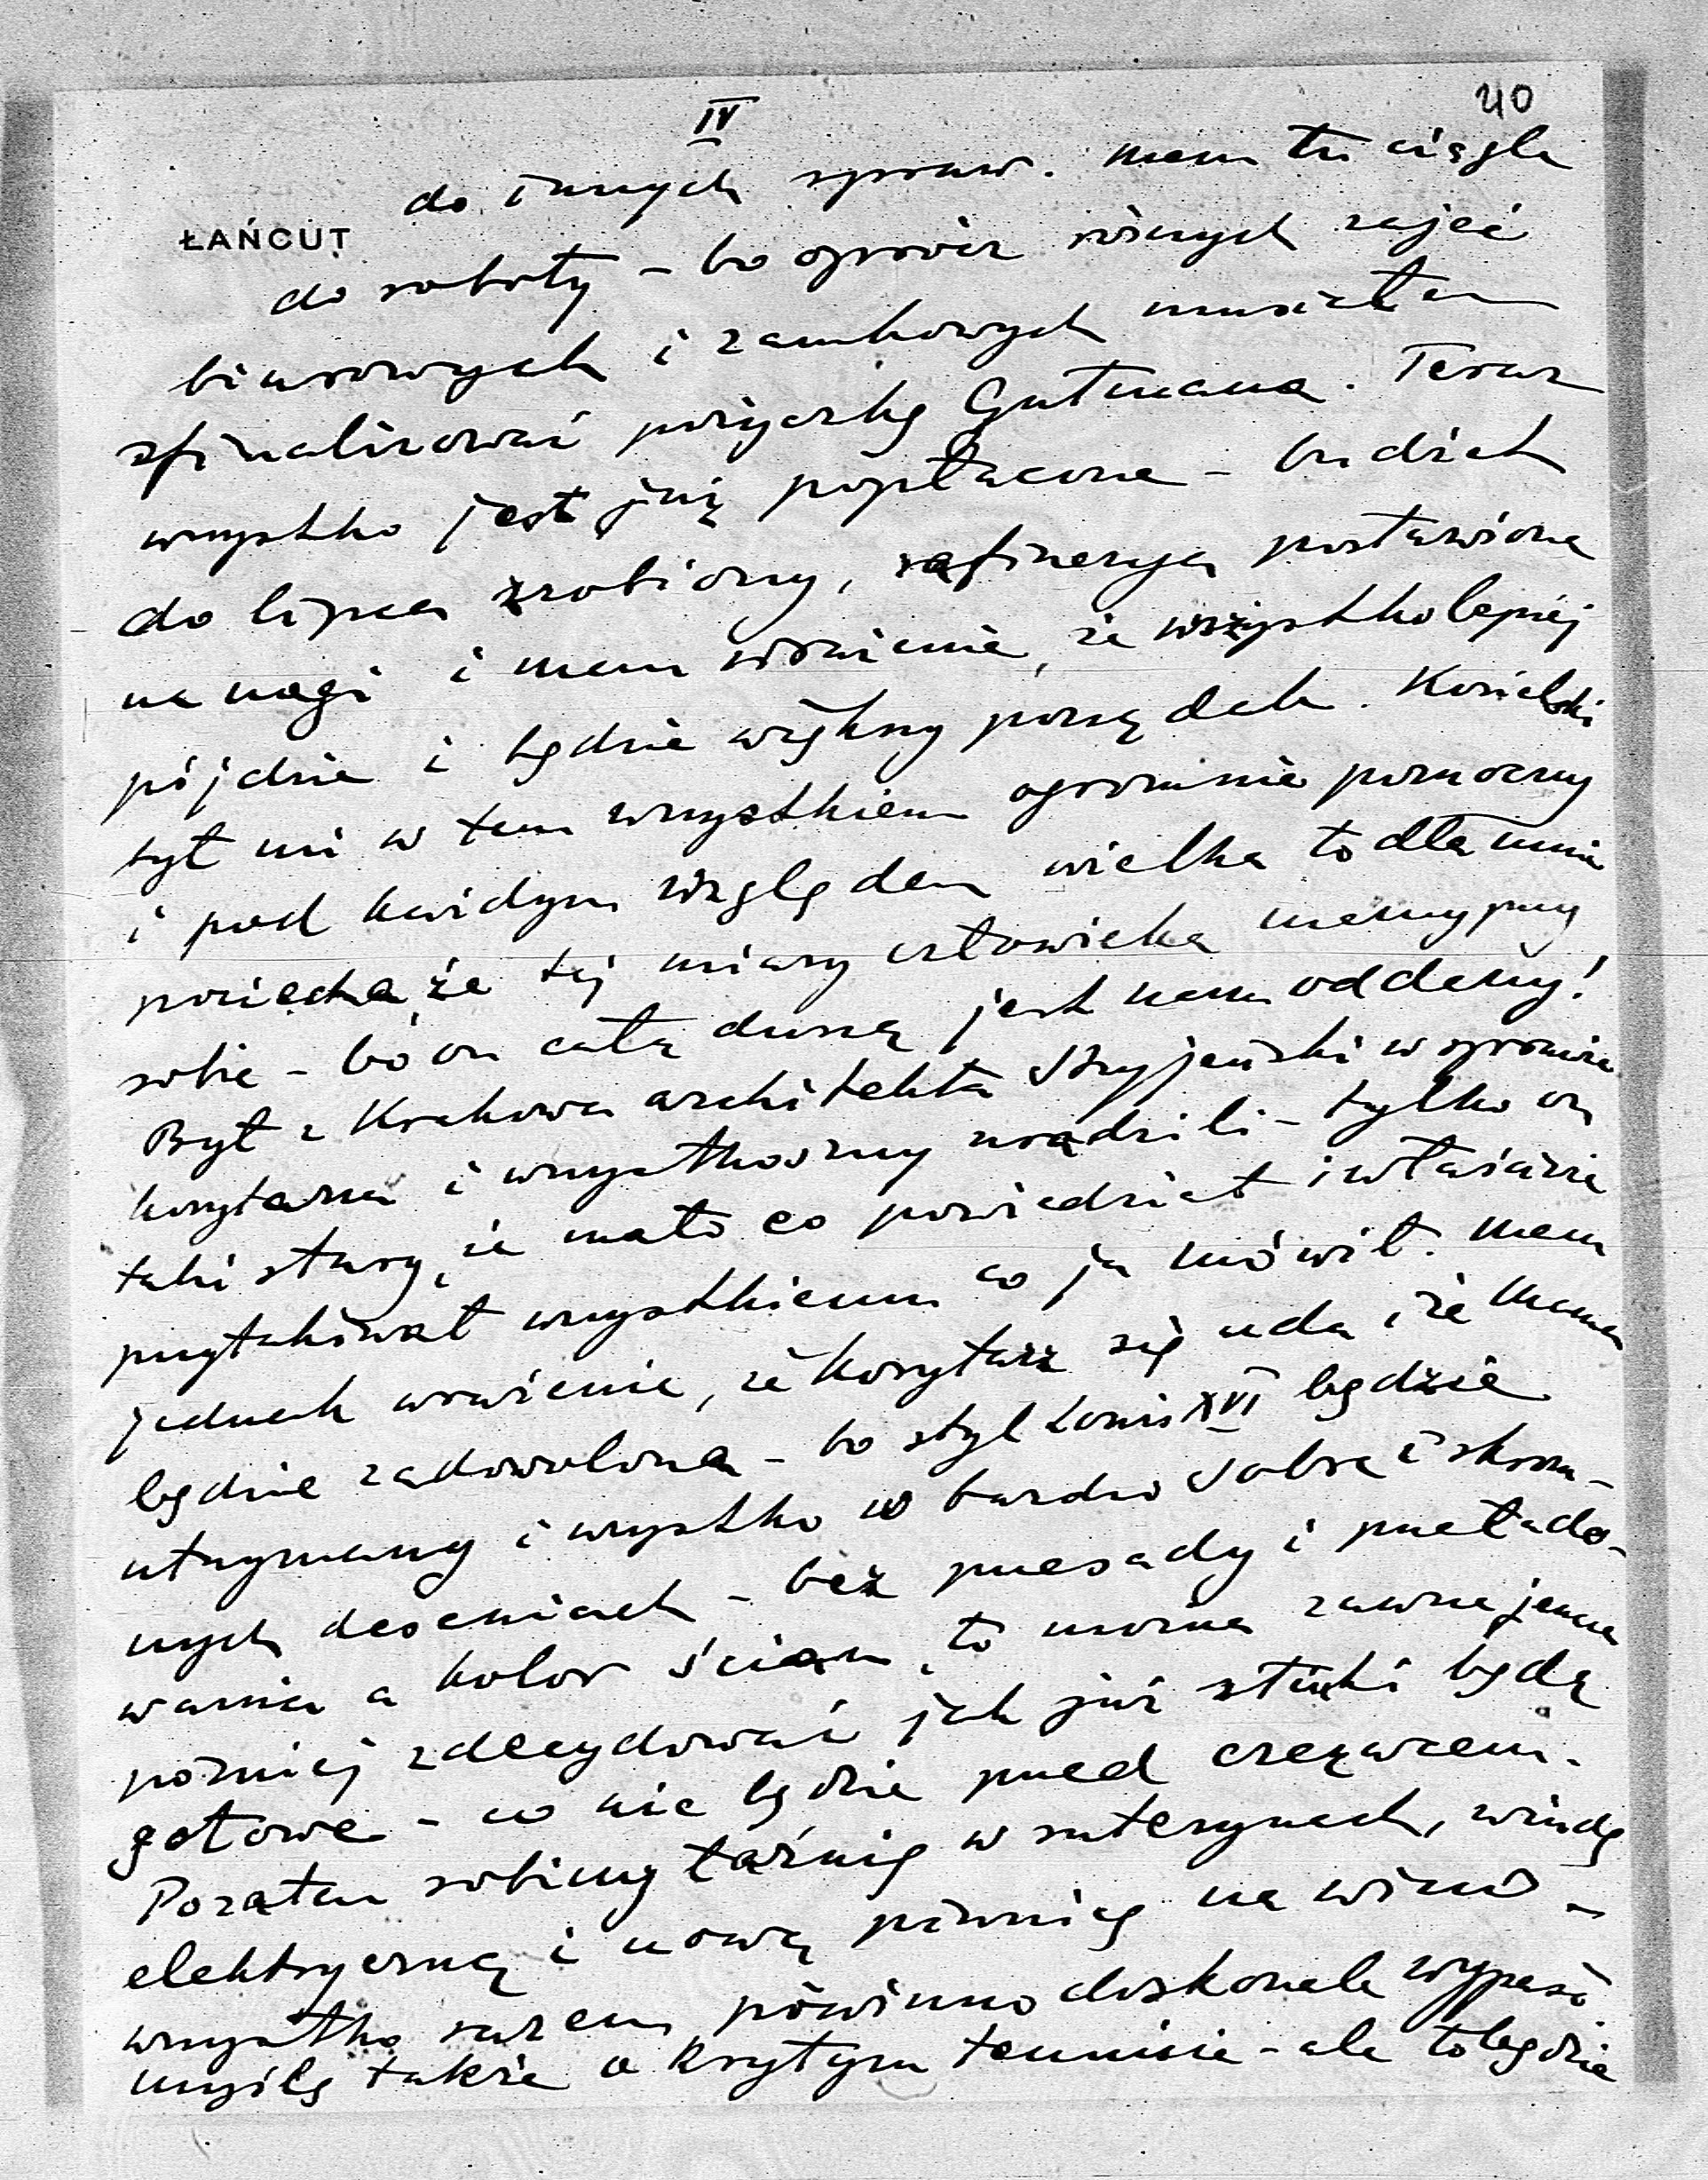 40
IV
ŁAŃCUT
do innych spraw. Mam tu ciągle
do roboty – bo oprócz różnych zajęć
biurowych i zamkowych musiałem
sfinalizować pożyczkę Gutmana. Teraz
wszystko jest już popłacone – budżet
do lipca zrobiony, rafinerya postawiona
na nogi i mam wrażenie, że wszystko lepiej
pójdzie i będzie większy porządek. Kosielski
był mi w tem wszystkiem ogromnie pomocny
i pod każdym względem wielka to dla mnie
pociecha, że tej miary człowieka mamy przy
sobie – bo on całą duszą jest nam oddany!
Był z Krakowa architekta Stryjeński w sprawie
korytarza i wszystkośmy uradzili – tylko on
taki stary, że mało co powiedział i właściwie
przytakiwał wszystkiemu co ja mówił. Mam
jednak wrażenie, że korytarz się uda i że Mama
będzie zadowolona – bo styl Louis XVI będzie
utrzymany i wszystko w bardzo dobre i skrom-
nych deseniach – bez przesady i przełado-
wania a kolor ścian, to można zawsze jeszcze
poźniej zdecydować jak już sztuki będą
gotowe – co nie będzie przed czerwcem.
Pozatem robimy łaźnię w suterynach, windę
elektryczną i nową piwnicę na wino –
wszystko razem powinno doskonale wypaść
myślę także o krytym tennisie – ale to będzie